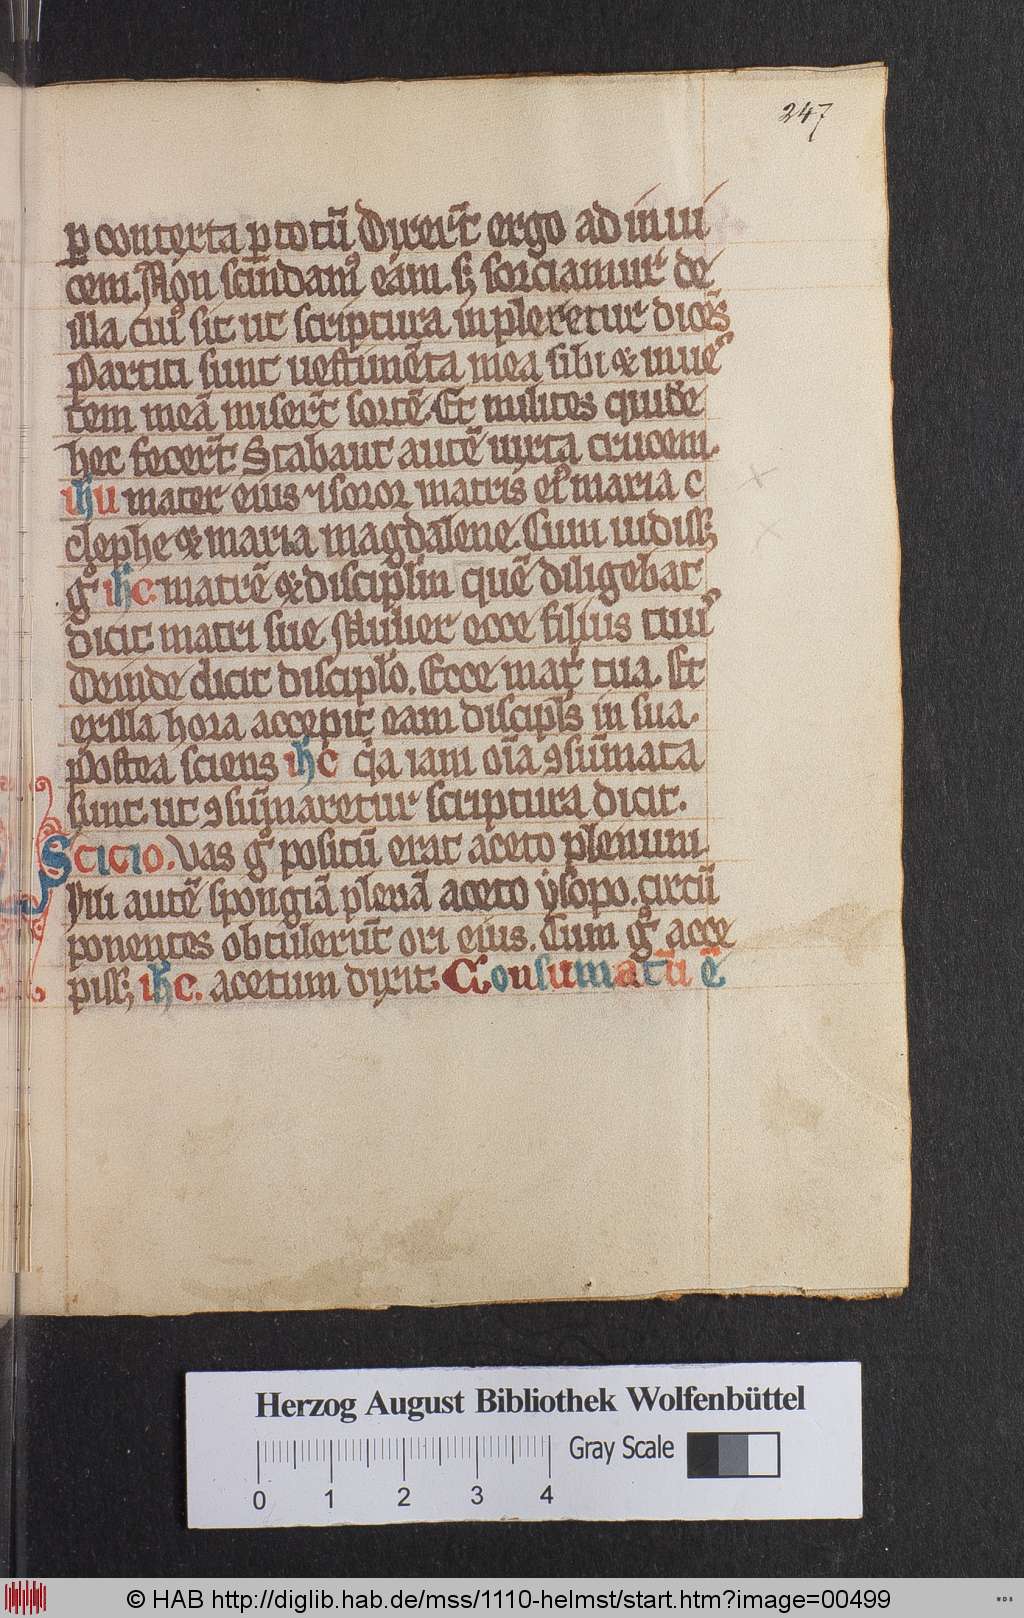 247
ꝑ contexta ꝑ totū Dixer̄t ergo ad inui
cem. Non scindamꝰ eam. sꝫ sorciamur de
illa cuiꝰ sit ut scriptura inpleretur dice̅s
Partiti sunt uestimēta mea sibi ⁊ in ueˢ
tem meā miser̄t sortē. Et milites quidē
hec fecer̄t Stabant autē iuxta crucem.
ihu mater eius ⁊ soror matris eiꝰ maria c
clephe ⁊ maria magdalene. Cum uidissꝫ
gͦ ihc matrē ⁊ disciplm̄ quē diligebat
dicit matri sue Mulier ecce filius tuuˢ
Deinde dicit disciplo. Ecce mat̄ tua. Et
exilla hora accepit eam discipls in sua.
Postea sciens ihc q̄a iam oīa ꝯsūmata
sunt. ut ꝯsūmaretur scriptura dicit.
Scicio. Vas gͦ positū erat aceto plenum.
Illi autē spongiā plenā aceto ysopo. circū
ponentes obtulerūt ori eius. Cum gͦ acce
pissꝫ ihc. acetum dixit. Consumatū ē
Herzog August Bibliothek Wolfenbüttel
Gray Scale
0 1 2 3 4
© HAB http://diglib.hab.de/mss/1110-helmst/start.htm?image=00499